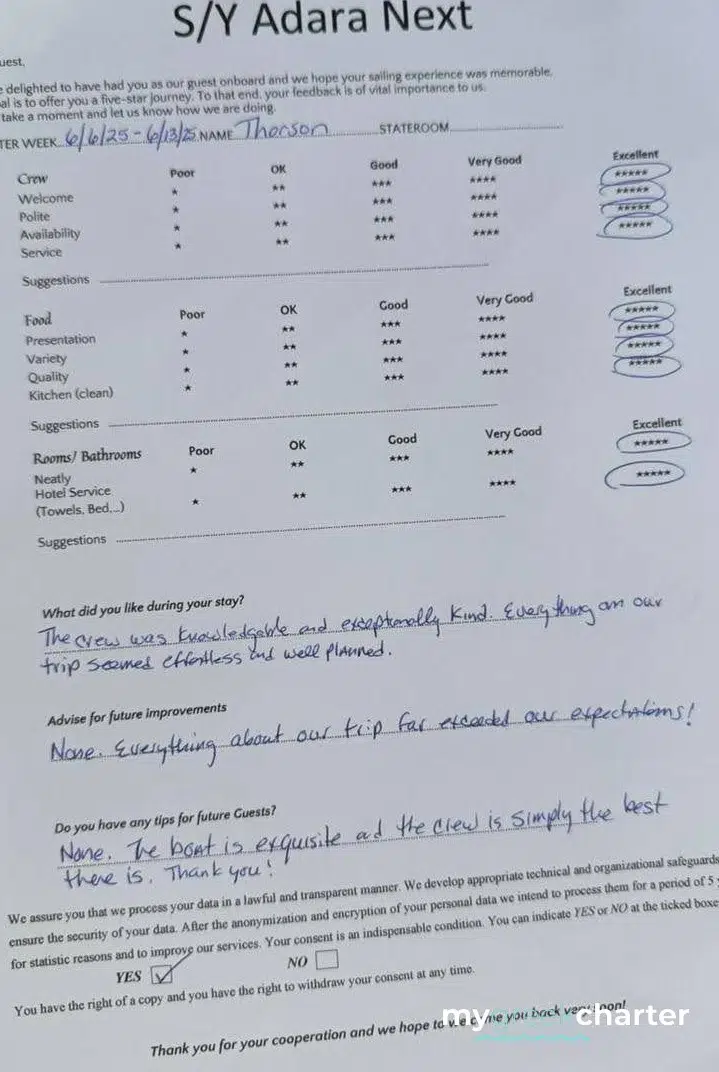 S/Y Adara Next
uest,
e delighted to have had you as our guest onboard and we hope your sailing experience was memorable.
al is to offer you a five-star journey. To that end, your feedback is of vital importance to us.
take a moment and let us know how we are doing.
TER WEEK 6/6/25 - 6/13/25 NAME Thorson STATEROOM
Crew Poor OK Good Very Good Excellent
Welcome * ** *** **** *****
Polite * ** *** **** *****
Availability * ** *** **** *****
Service * ** *** **** *****
Suggestions
Food Poor OK Good Very Good Excellent
Presentation * ** *** **** *****
Variety * ** *** **** *****
Quality * ** *** **** *****
Kitchen (clean) * ** *** **** *****
Suggestions
Rooms/ Bathrooms Poor OK Good Very Good Excellent
Neatly * ** *** **** *****
Hotel Service
(Towels, Bed,...) * ** *** **** *****
Suggestions
What did you like during your stay?
The crew was knowledgable and exceptionally kind. Everything on our
trip seemed effortless and well planned.
Advise for future improvements
None. Everything about our trip far exceeded our expectations!
Do you have any tips for future Guests?
None. The boat is exquisite and the crew is simply the best
there is. Thank you!
We assure you that we process your data in a lawful and transparent manner. We develop appropriate technical and organizational safeguards
ensure the security of your data. After the anonymization and encryption of your personal data we intend to process them for a period of 5
for statistic reasons and to improve our services. Your consent is an indispensable condition. You can indicate YES or NO at the ticked boxe
YES NO
You have the right of a copy and you have the right to withdraw your consent at any time.
Thank you for your cooperation and we hope to welcome you back very soon!
mygreekcharter